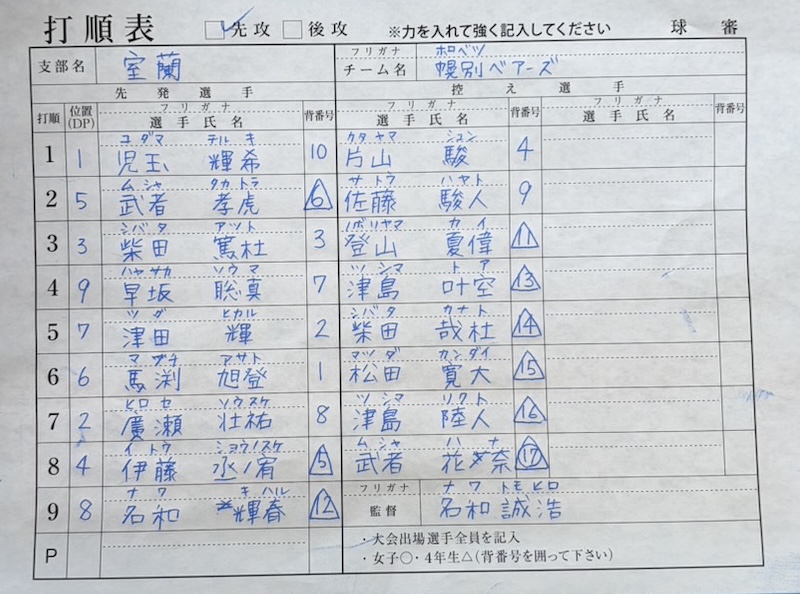 打順表 ☑先攻 □後攻 ※力を入れて強く記入してください 球審
支部名 室蘭 フリガナ ホロベツ
チーム名 幌別ベアーズ
先発選手 控え選手
打順 位置(DP) フリガナ 選手氏名 背番号 フリガナ 選手氏名 背番号 フリガナ 選手氏名 背番号
コダマ テルキ カタヤマ シュン
1 1 児玉 輝希 10 片山 駿 4
ムシャ タカトラ サトウ ハヤト
2 5 武者 孝虎 6 佐藤 駿人 9
シバタ アツト ノボリヤマ カイ
3 3 柴田 篤杜 3 登山 夏偉 11
ハヤサカ ソウマ ツシマ トア
4 9 早坂 聡真 7 津島 叶空 13
ツダ ヒカル シバタ カナト
5 7 津田 輝 2 柴田 哉杜 14
マブチ アサト マツダ カンダイ
6 6 馬渕 旭登 1 松田 寛大 15
ヒロセ ソウスケ ツシマ リクト
7 2 廣瀬 壮祐 8 津島 陸人 16
イトウ ショウノスケ ムシャ ハナ
8 4 伊藤 丞ノ宥 5 武者 花奈 17
ナワ キハル フリガナ ナワ トモヒロ
9 8 名和 輝春 12 監督 名和誠浩
P
・大会出場選手全員を記入
・女子○・4年生△(背番号を囲って下さい)